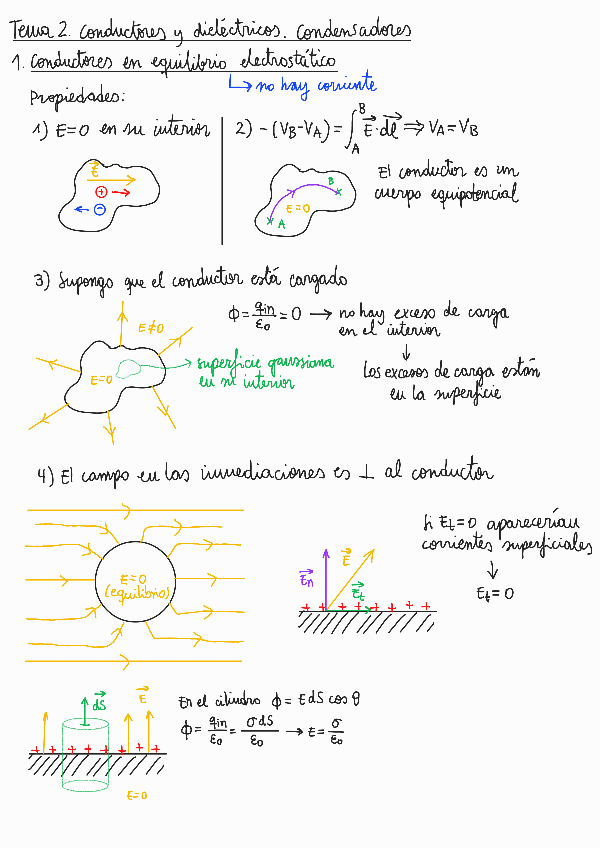 Tema 2. Conductores y dieléctricos. Condensadores
1. Conductores en equilibrio electrostático
↳ no hay corriente
Propiedades:
1) E=0 en su interior
2) -(V_B-V_A) = ∫_A^B E⃗·dl⃗ ⇒ V_A=V_B
+
-
B
E=0
A
El conductor es un
cuerpo equipotencial
3) Supongo que el conductor está cargado
E≠0
E=0
superficie gaussiana
en su interior
Φ = q_in/ε_0 = 0 → no hay exceso de carga
en el interior
↓
Los excesos de carga están
en la superficie
4) El campo en las inmediaciones es ⊥ al conductor
E=0
(equilibrio)
E⃗_n
E⃗
E⃗_t
+ + + + + + + +
Si E_t=0 aparecerían
corrientes superficiales
↓
E_t=0
dS⃗
E⃗
+ + + + + + + +
E=0
En el cilindro Φ = E dS cos θ
Φ = q_in/ε_0 = σ dS/ε_0 → E = σ/ε_0